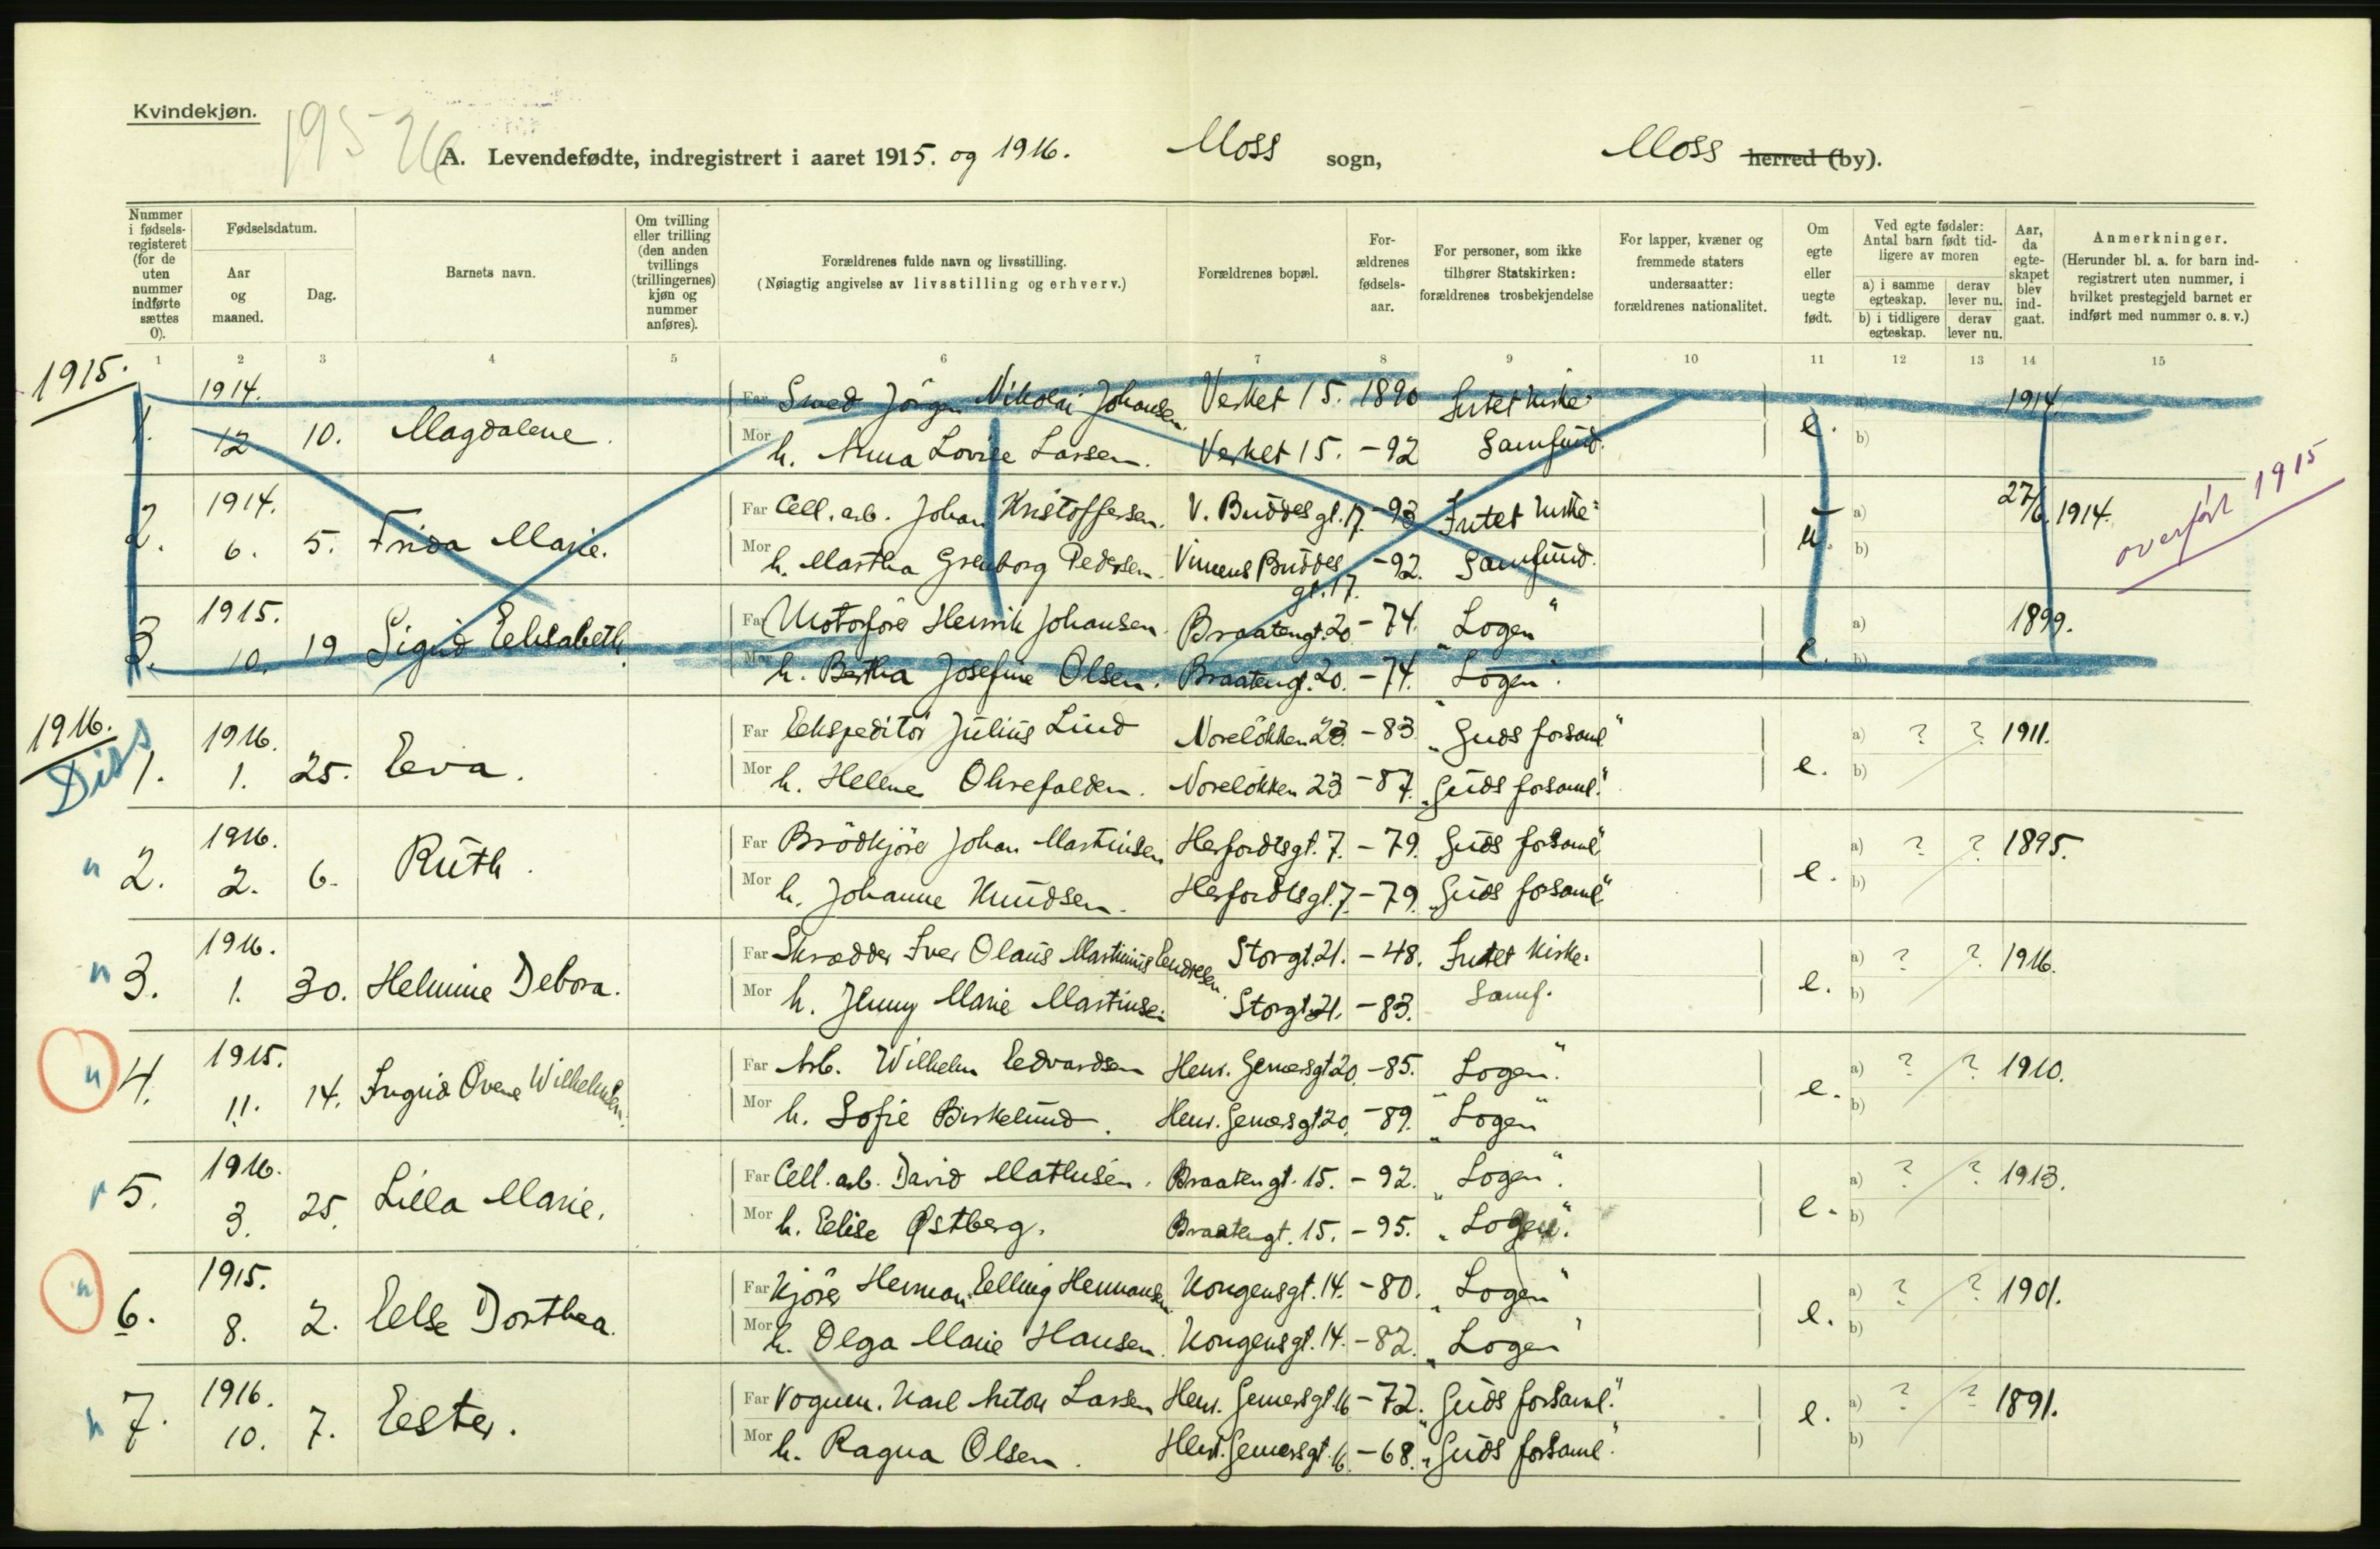 Kvindekjøn.
195
A. Levendefødte, indregistrert i aaret 1915. og 1916. Moss sogn, Moss herred (by).
Nummer i fødselsregisteret (for de uten nummer indførte sættes 0).
Fødselsdatum.
Aar og maaned.
Dag.
Barnets navn.
Om tvilling eller trilling (den anden tvillings (trillingernes) kjøn og nummer anføres).
Forældrenes fulde navn og livsstilling.
(Nøiagtig angivelse av livsstilling og erhverv.)
Forældrenes bopæl.
Forældrenes fødselsaar.
For personer, som ikke tilhører Statskirken: forældrenes trosbekjendelse
For lapper, kvæner og fremmede staters undersaatter: forældrenes nationalitet.
Om egte eller uegte født.
Ved egte fødsler: Antal barn født tidligere av moren
a) i samme egteskap.
derav lever nu.
b) i tidligere egteskap.
derav lever nu.
Aar, da egteskapet blev indgaat.
Anmerkninger.
(Herunder bl. a. for barn indregistrert uten nummer, i hvilket prestegjeld barnet er indført med nummer o. s. v.)
1 2 3 4 5 6 7 8 9 10 11 12 13 14 15
1915.
1914.
Far Smed Jörgen Nikolai Johansen. Verket 15. 1890 Lutet kirke= 1914.
1. 12 10. Magdalene. e.
Mor h. Anna Lovise Larsen. Verket 15. -92 Samfund. b)
1914.
Far Cell. arb. Johan Kristoffersen. V. Buddes gt. 17. -93 Lutet kirke= a) 27/6. 1914. overført 1915
2. 6. 5. Frida Marie. u.
Mor h. Martha Grenborg Pedersen. Vincens Buddes gt. 17. -92. Samfund. b)
1915.
Far Motorförer Henrik Johansen. Braatengt. 20 -74. "Logen" a) 1899.
3. 10. 19 Sigrid Elisabeth. e.
Mor h. Bertha Josefine Olsen. Braatengt. 20. -74. "Logen". b)
1916.
Diss
1916.
Far Ekspeditör Julius Lind Noreløkken 23. -83. "Guds forsaml." a) ? ? 1911.
1. 1. 25. Eva. e.
Mor h. Helene Ohrefalden. Noreløkken 23 -87. "Guds forsaml." b)
1916.
Far Brödkjörer Johan Martinsen Herfordtsgt. 7. -79. Guds forsaml" a) ? ? 1895.
" 2. 2. 6. Ruth. e.
Mor h. Johanne Knudsen. Herfordtsgt. 7. -79. "Guds forsaml." b)
1916.
Far Skrædder Iver Olaus Martinius Endresen. Storgt. 21. -48. Lutet kirke= a) ? ? 1916.
" 3. 1. 30. Helmine Debora. e.
Mor h. Jenny Marie Martinsen Storgt. 21. -83. Samf. b)
1915.
Far Arb. Wilhelm Edvardsen Henr. Gernersgt 20. -85. Logen". a) ? ? 1910.
" 4. 11. 14. Ingrid Ovene Wilhelmsen. e.
Mor h. Sofie Birkelund. Henr. Gernersgt 20. -89. "Logen" b)
1916.
Far Cell. arb. David Mathisen. Braatengt. 15. -92. Logen". a) ? ? 1913.
5. 3. 25. Lilla Marie. e.
Mor h. Elise Østberg. Braatengt. 15. -95. "Logen". b)
1915.
Far Kjörer Herman Elling Hermansen. Kongensgt. 14. -80. "Logen" a) ? ? 1901.
" 6. 8. 2. Else Dorthea. e.
Mor h. Olga Marie Hansen. Kongensgt. 14. -82. "Logen" b)
1916.
Far Vognm. Karl Anton Larsen Henr. Gernersgt. 16 -72. "Guds forsaml." a) ? ? 1891.
7. 10. 7. Ester. e.
Mor h. Ragna Olsen. Henr. Gernersgt. 16. -68. "Guds forsaml". b)